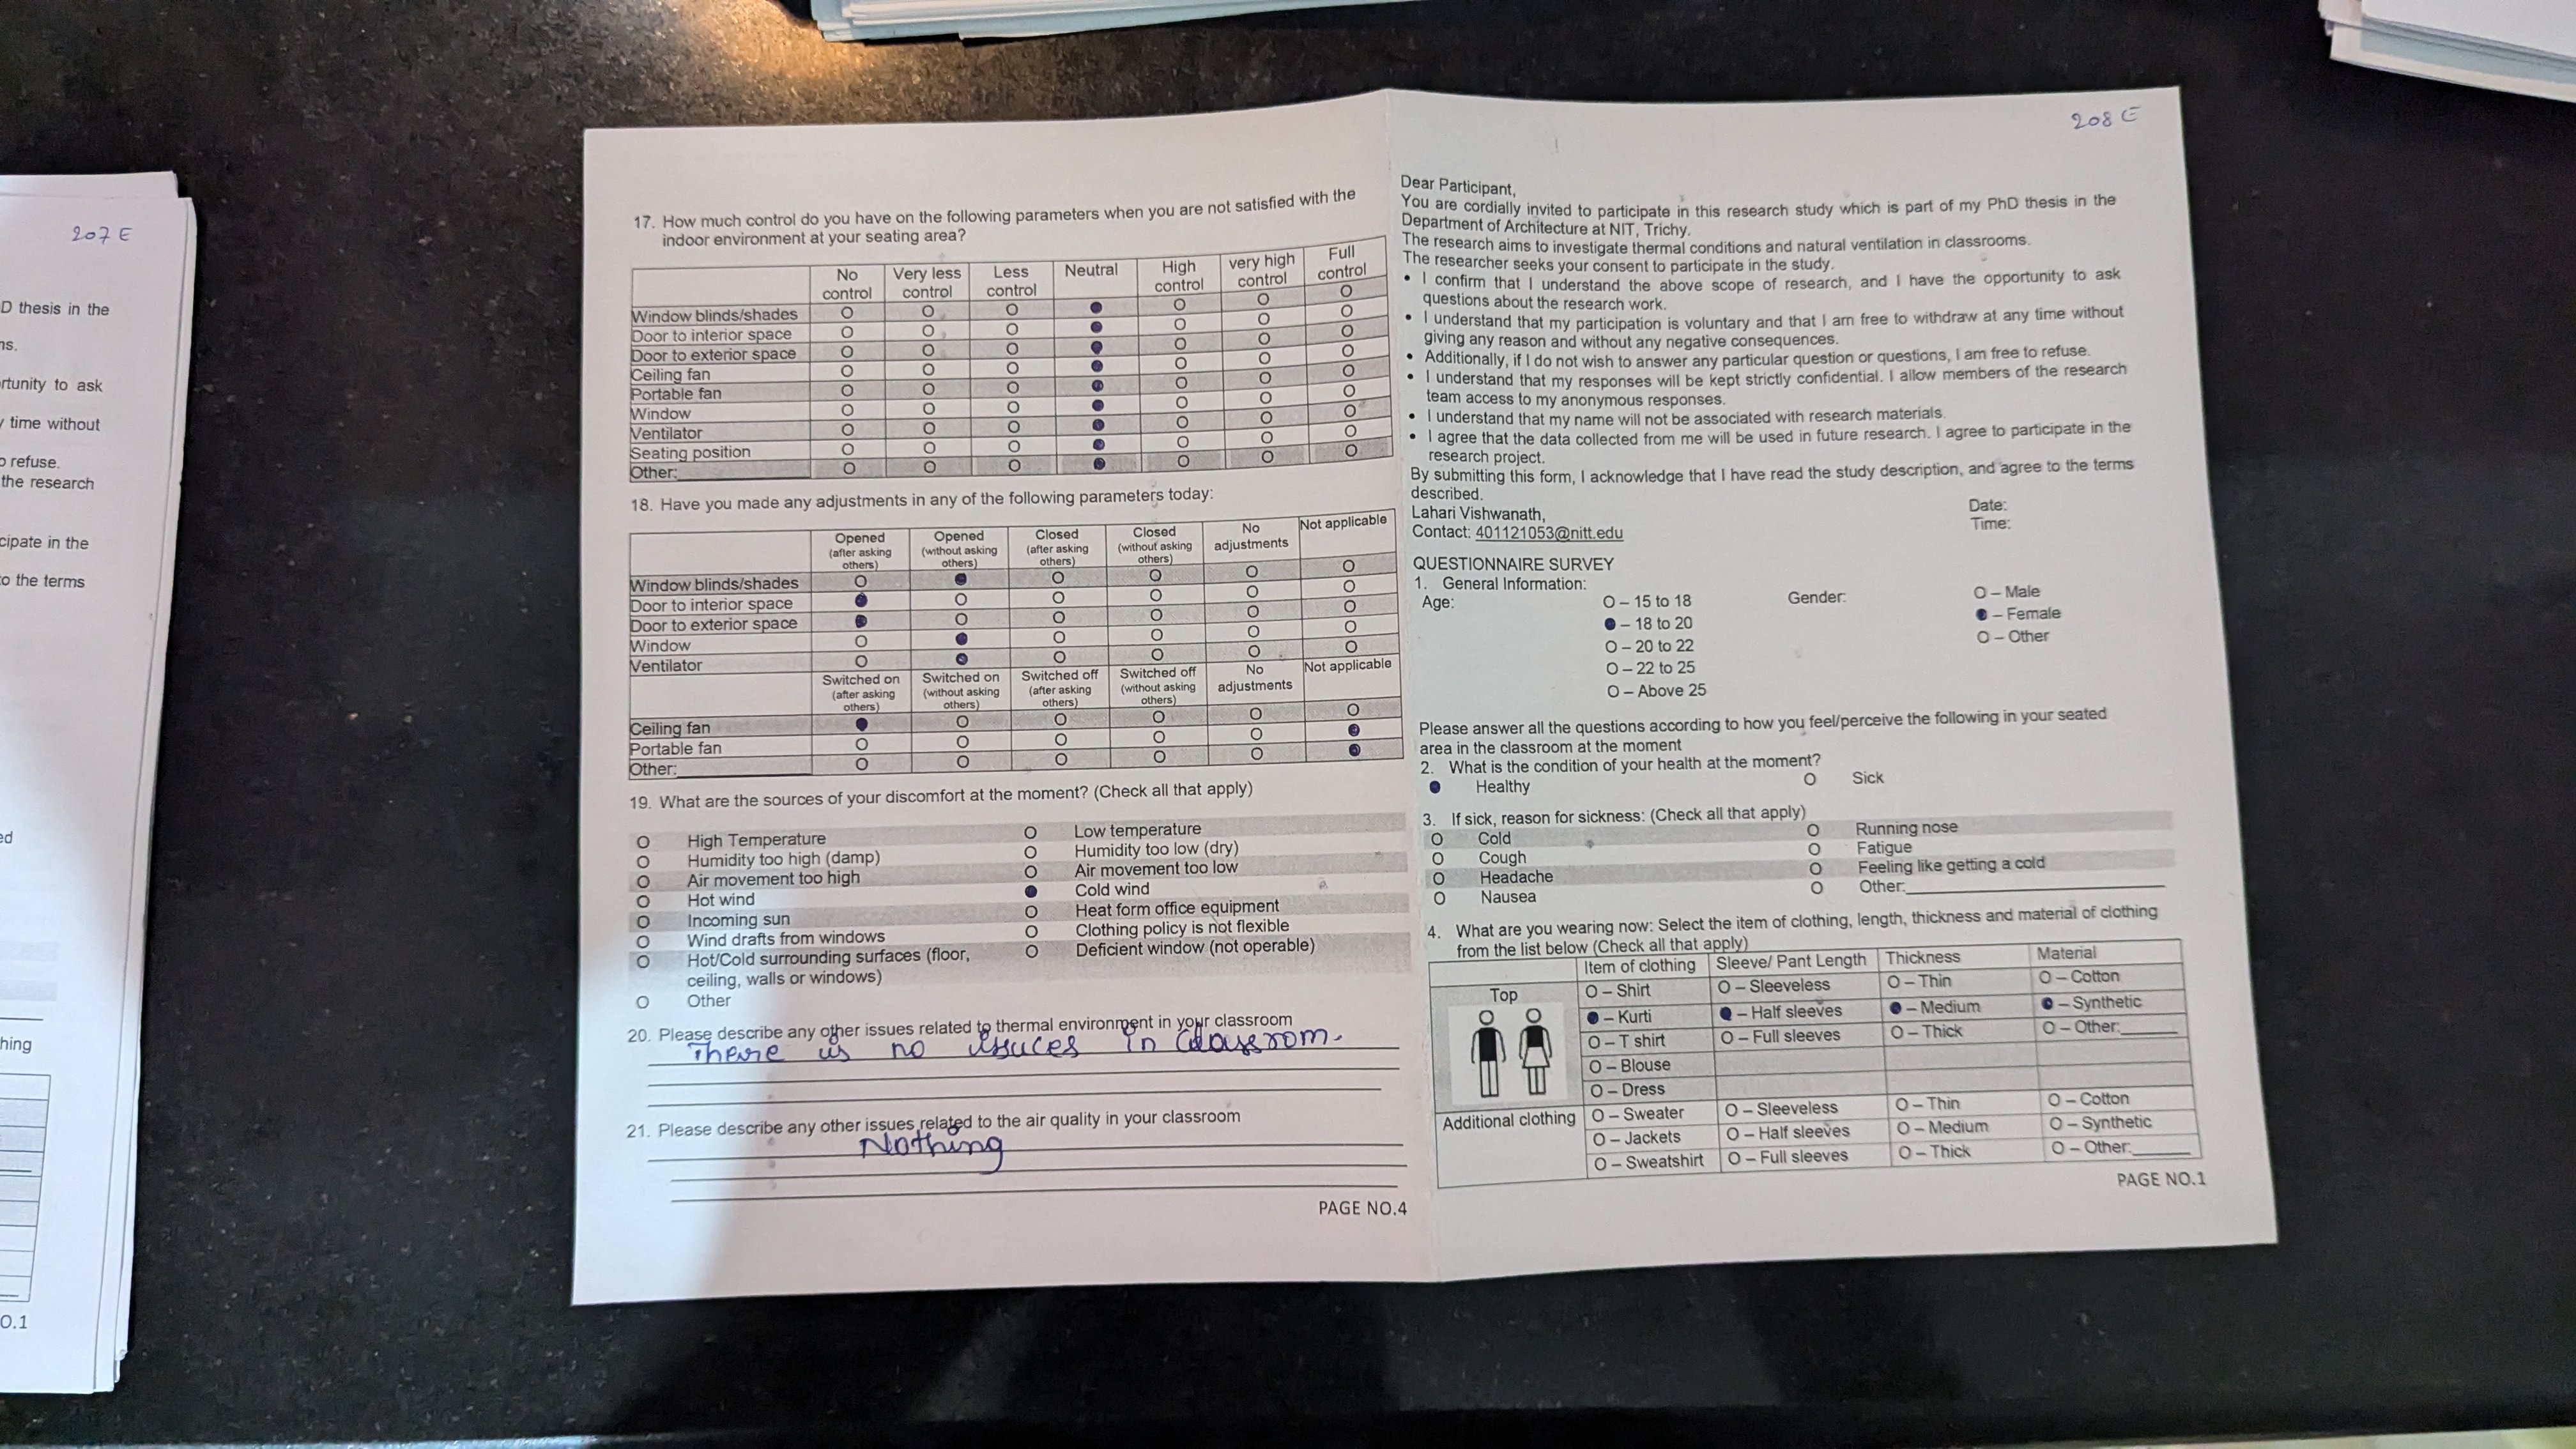 207 E
D thesis in the
ns.
rtunity to ask
y time without
o refuse.
the research
cipate in the
o the terms
ed
hing
O.1
17. How much control do you have on the following parameters when you are not satisfied with the
indoor environment at your seating area?
No control Very less control Less control Neutral High control very high control Full control
Window blinds/shades O O O ● O O O
Door to interior space O O O ● O O O
Door to exterior space O O O ● O O O
Ceiling fan O O O ● O O O
Portable fan O O O ● O O O
Window O O O ● O O O
Ventilator O O O ● O O O
Seating position O O O ● O O O
Other: O O O ● O O O
18. Have you made any adjustments in any of the following parameters today:
Opened (after asking others) Opened (without asking others) Closed (after asking others) Closed (without asking others) No adjustments Not applicable
Window blinds/shades O ● O O O O
Door to interior space ● O O O O O
Door to exterior space ● O O O O O
Window O ● O O O O
Ventilator O ● O O O O
Switched on (after asking others) Switched on (without asking others) Switched off (after asking others) Switched off (without asking others) No adjustments Not applicable
Ceiling fan ● O O O O O
Portable fan O O O O O ●
Other: O O O O O ●
19. What are the sources of your discomfort at the moment? (Check all that apply)
O High Temperature O Low temperature
O Humidity too high (damp) O Humidity too low (dry)
O Air movement too high O Air movement too low
O Hot wind ● Cold wind
O Incoming sun O Heat form office equipment
O Wind drafts from windows O Clothing policy is not flexible
O Hot/Cold surrounding surfaces (floor, O Deficient window (not operable)
ceiling, walls or windows)
O Other
20. Please describe any other issues related to thermal environment in your classroom
There is no issuces in classrom.
21. Please describe any other issues related to the air quality in your classroom
Nothing
PAGE NO.4
208 E
Dear Participant,
You are cordially invited to participate in this research study which is part of my PhD thesis in the
Department of Architecture at NIT, Trichy.
The research aims to investigate thermal conditions and natural ventilation in classrooms.
The researcher seeks your consent to participate in the study.
• I confirm that I understand the above scope of research, and I have the opportunity to ask
questions about the research work.
• I understand that my participation is voluntary and that I am free to withdraw at any time without
giving any reason and without any negative consequences.
• Additionally, if I do not wish to answer any particular question or questions, I am free to refuse.
• I understand that my responses will be kept strictly confidential. I allow members of the research
team access to my anonymous responses.
• I understand that my name will not be associated with research materials.
• I agree that the data collected from me will be used in future research. I agree to participate in the
research project.
By submitting this form, I acknowledge that I have read the study description, and agree to the terms
described.
Lahari Vishwanath, Date:
Contact: 401121053@nitt.edu Time:
QUESTIONNAIRE SURVEY
1. General Information:
Age: O – 15 to 18 Gender: O – Male
● – 18 to 20 ● – Female
O – 20 to 22 O – Other
O – 22 to 25
O – Above 25
Please answer all the questions according to how you feel/perceive the following in your seated
area in the classroom at the moment
2. What is the condition of your health at the moment?
● Healthy O Sick
3. If sick, reason for sickness: (Check all that apply)
O Cold O Running nose
O Cough O Fatigue
O Headache O Feeling like getting a cold
O Nausea O Other:
4. What are you wearing now: Select the item of clothing, length, thickness and material of clothing
from the list below (Check all that apply)
Item of clothing Sleeve/ Pant Length Thickness Material
Top O – Shirt O – Sleeveless O – Thin O – Cotton
● – Kurti ● – Half sleeves ● – Medium ● – Synthetic
O – T shirt O – Full sleeves O – Thick O – Other:
O – Blouse
O – Dress
Additional clothing O – Sweater O – Sleeveless O – Thin O – Cotton
O – Jackets O – Half sleeves O – Medium O – Synthetic
O – Sweatshirt O – Full sleeves O – Thick O – Other:
PAGE NO.1